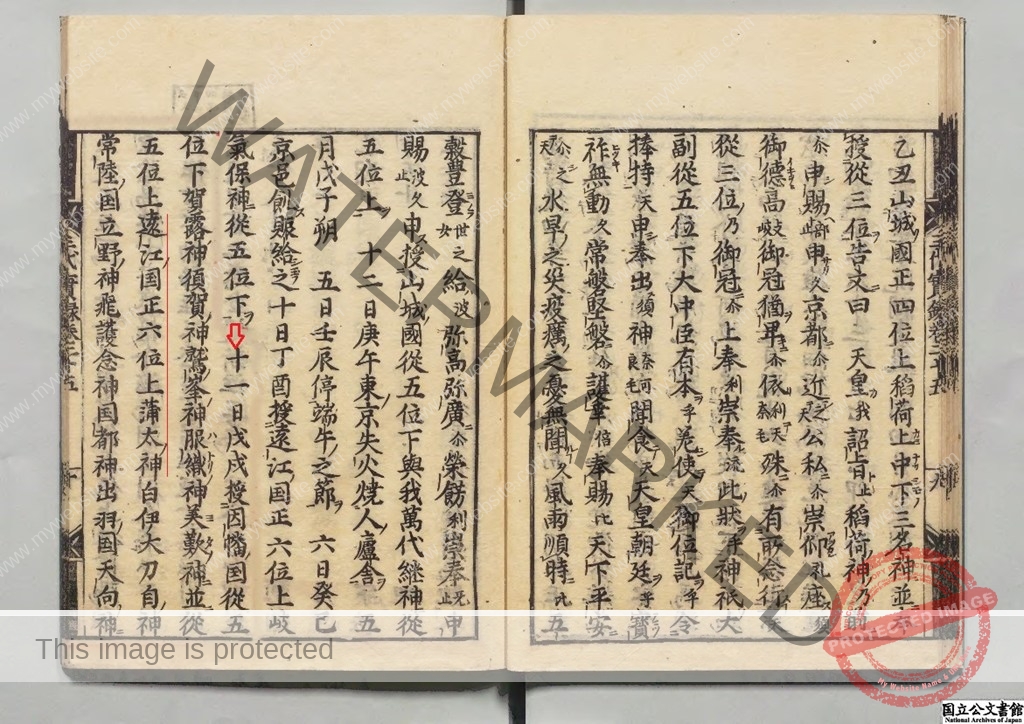 乙丑山城國正四位上稻荷上中下三名神並
授從三位告文曰 天皇我詔旨止稻荷神乃前
尒申賜部止申久京都尒近之公私尒崇仰礼座
御德高岐御冠猶卑尒依利天奈毛殊尒有所念行
從三位乃御冠尒上奉利崇奉流此狀乎神祇大
副從五位下大中臣有本乎差使天御位記乎令
捧持天申奉出須神奈何良毛聞食天天皇朝廷乎寶
祚無動久常磐堅磐尒護幸倍奉賜比天下平安
尒天之水旱之災疫癘之憂無聞久風雨順時比五
穀豐登世之女給波弥高弥廣尒榮餝利崇奉牟止申
賜波久止申授山城國從五位下與我萬代継神從
五位上 十二日庚午東京失火燒人廬舍 五
月戊子朔 五日壬辰停端午之節 六日癸巳
京邑飢賑給之十日丁酉授遠江国正六位上岐
氣保神從五位下十一日戊戌授因幡国從五
位下賀露神須賀神鷲峯神服織神美歎神並從
五位上遠江国正六位上蒲太神白伊大刀自神
常陸国立野神飛護念神国都神出羽国天向神
三代實録卷二十五
WATERMARKED
www.mywebsite.com
This image is protected
PROTECTED IMAGE
My Website Name & URL
国立公文書館
National Archives of Japan